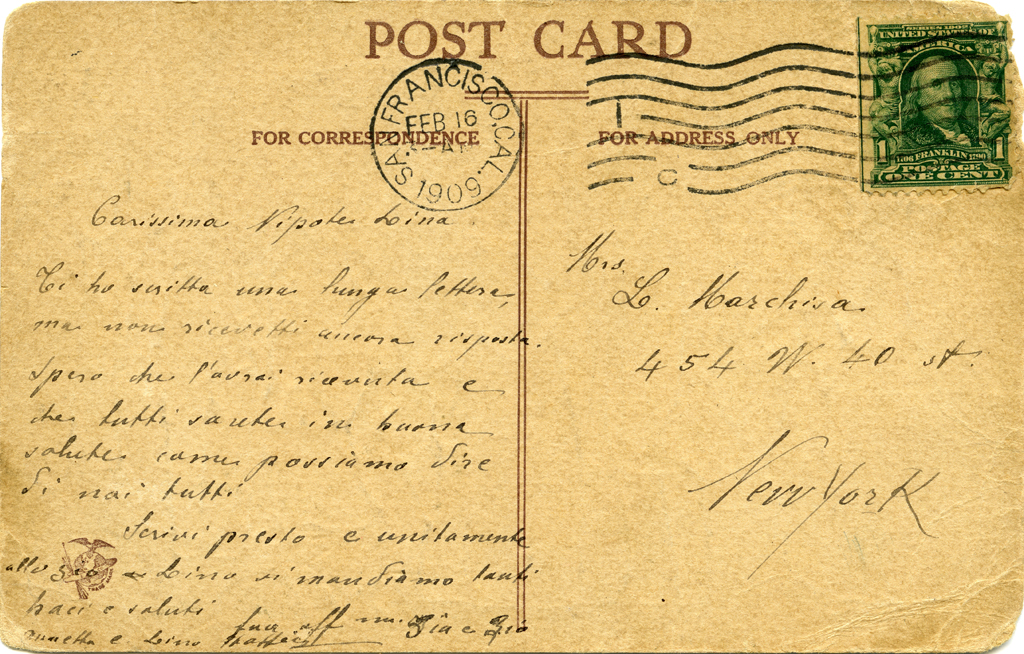 POST CARD
SAN FRANCISCO, CAL.
FEB 16
1909
SERIES 1902
UNITED STATES OF
AMERICA
1 1706 FRANKLIN 1790 1
POSTAGE
ONE CENT
FOR CORRESPONDENCE
FOR ADDRESS ONLY
Carissima Nipote Lina
Ti ho scritta una lunga lettera,
ma non ricevetti ancora risposta.
Spero che l'avrai ricevuta e
che tutti sarete in buona
salute come possiamo dire
di noi tutti
Scrivi presto e unitamente
allo Zio Lino vi mandiamo tanti
baci e saluti
Zia e Zio
e Lino
Mrs.
L. Marchisa
454 W. 40 st.
New York